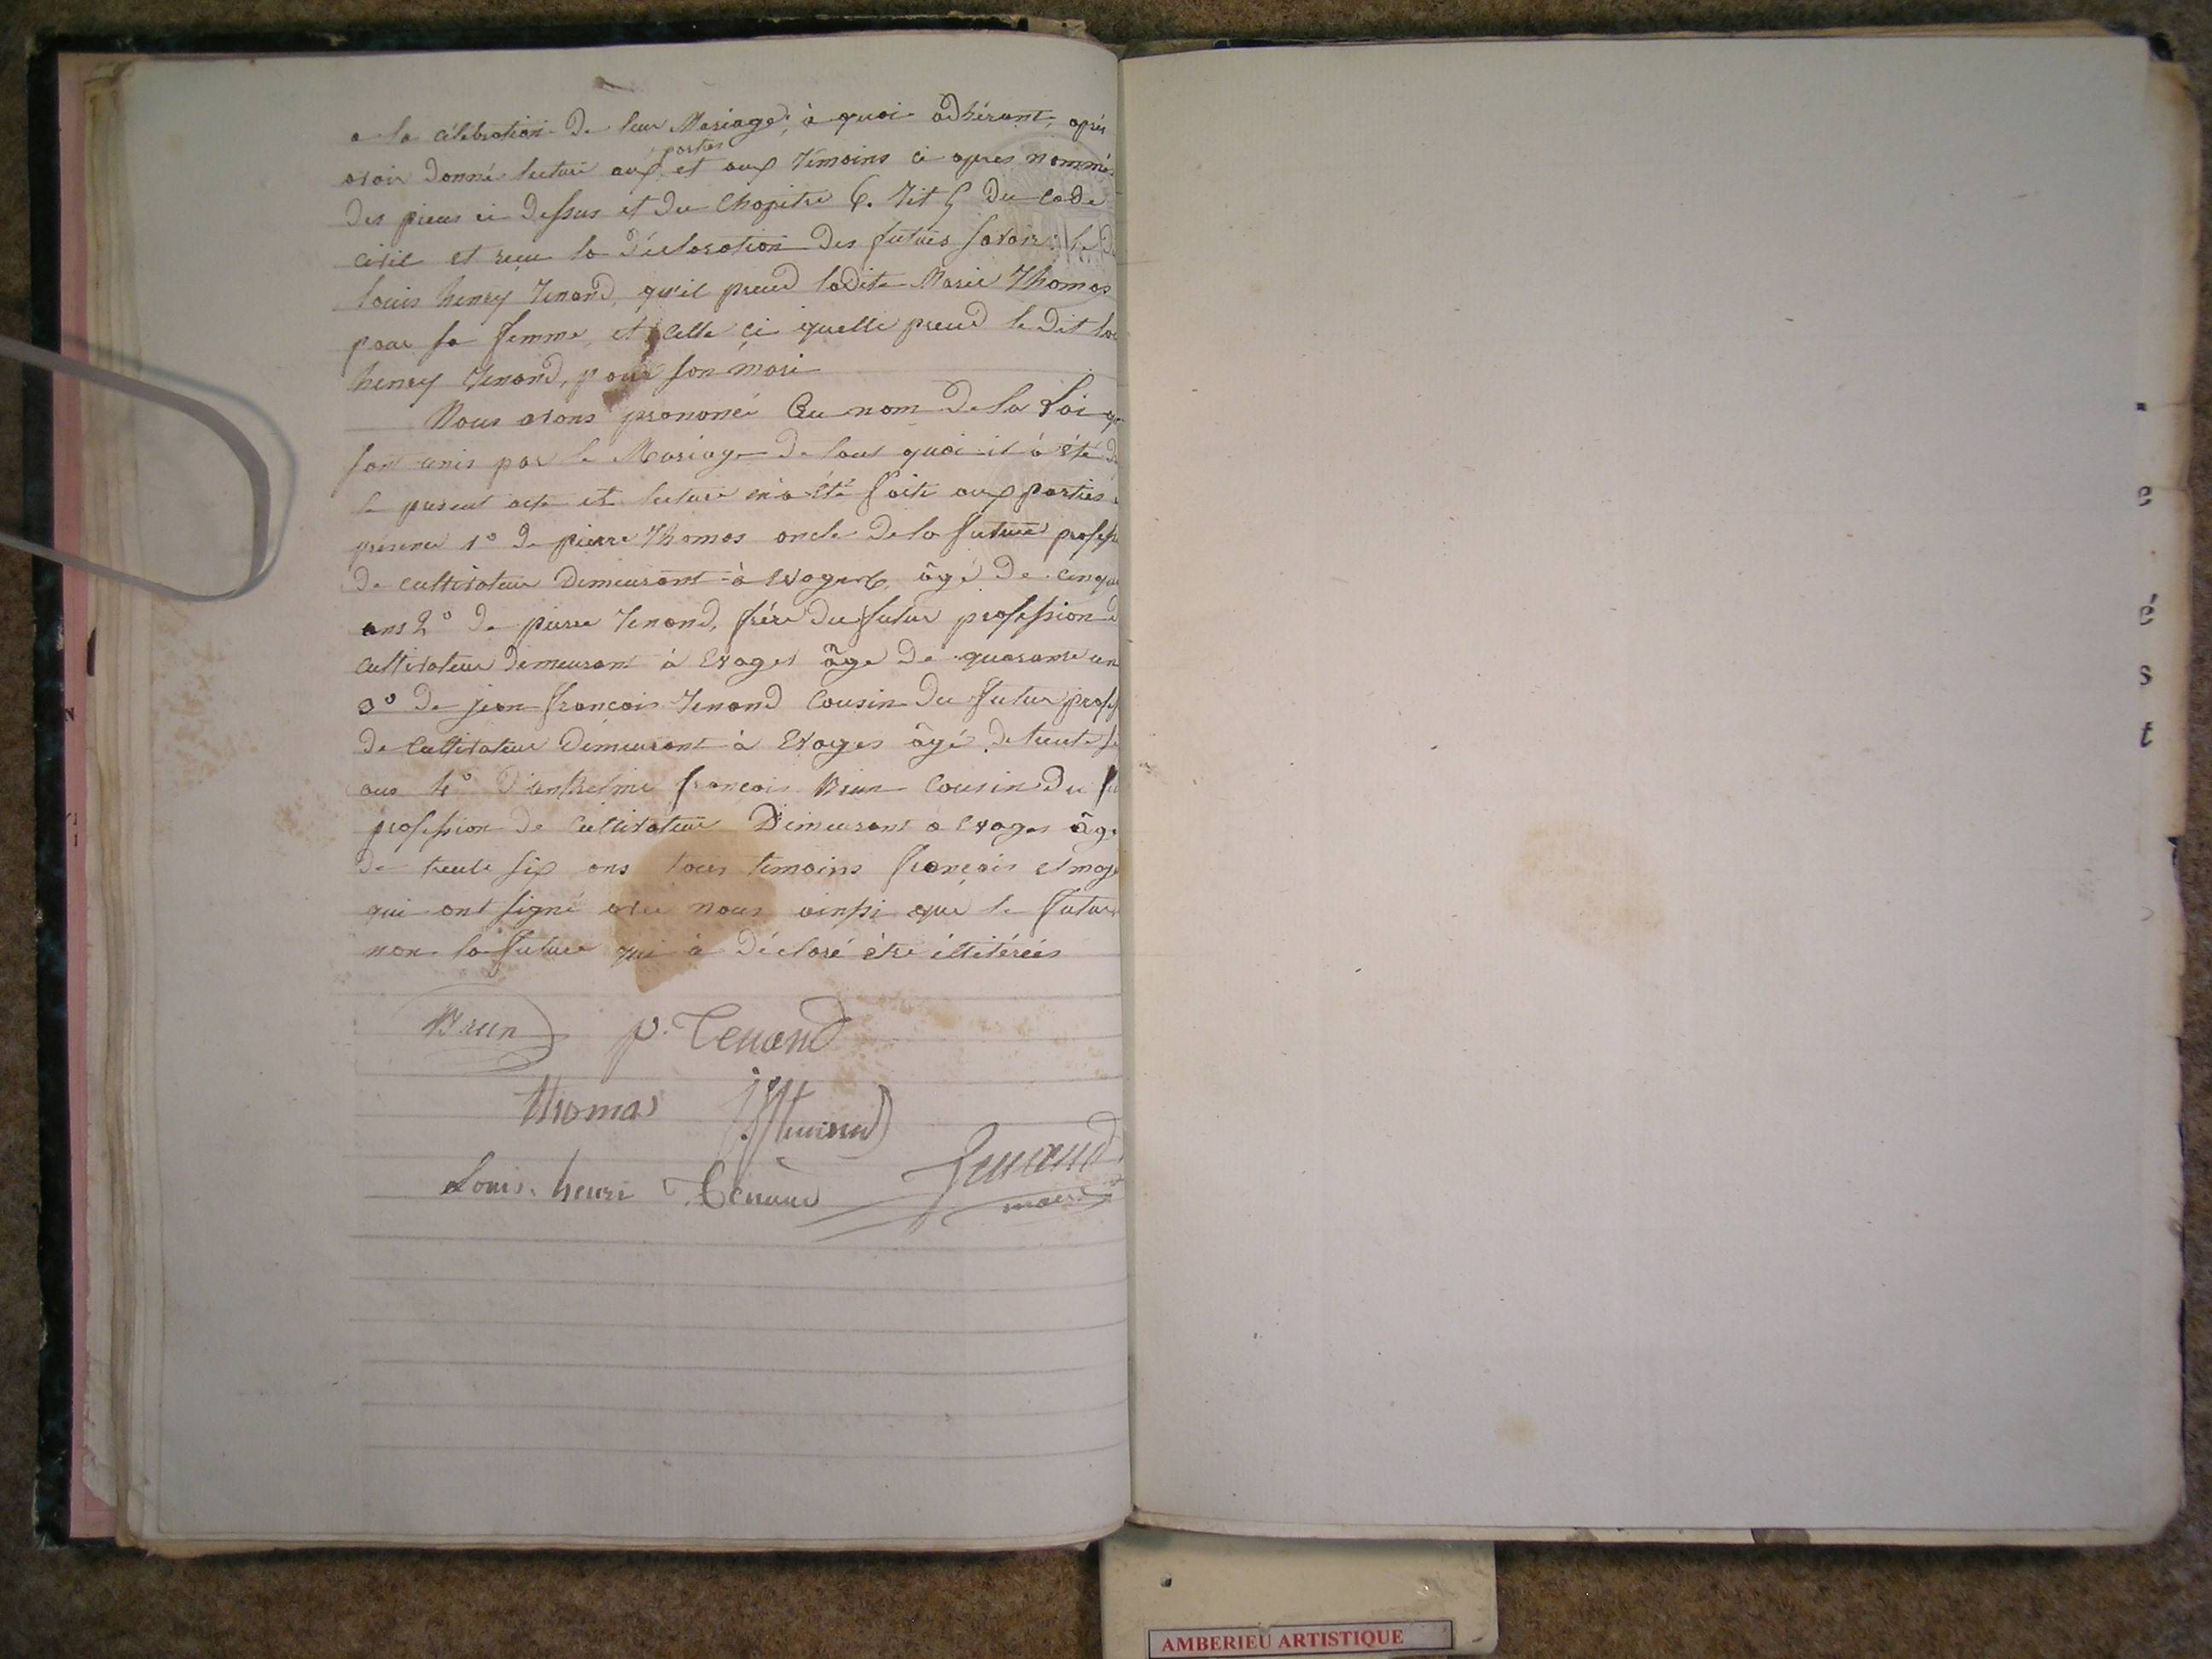 a la célébration de leur Mariage, à quoi adhérant, après
parties
avoir donné lecture aux et aux témoins ci apres nommés
des pieces ci dessus et du Chapitre 6. Tit 5 du Code
Civil et reçu la déclaration des futurs savoir: le D
louis henry Tenand, qu'il prend ladite Marie Thomas
pour sa femme, et Celle ci quelle prend le dit lo
henry Tenand, pour son mari
Nous avons prononcé Au nom de la Loi q
sont unis par le Mariage de tout quoi il à été d
le present acte et lecture en a été faite aux parties
présence 1º de pierre Thomas oncle de la future profess
de cultivateur Demeurant à Evages, âgé de cinqu
ans 2º de pierre Tenand, frére du futur profession d
Cultivateur demeurant à Evages âge de quarante un
3º de jean françois Tenand Cousin du futur profess
de Cultivateur Demeurant à Evages âgé de trente s
ans 4º d'anthelme françois Brun Cousin du fu
profession de Cultivateur Demeurant a Evages âgé
de trente six ans tous temoins françois et maj
qui ont signé avec nous ainssi que le futur
non la future qui à déclaré étre illitérées
Brun p. Tenand
thomas jf tenand
Louis. henri Tenand Tenand
maire
e
é
s
t
AMBERIEU ARTISTIQUE